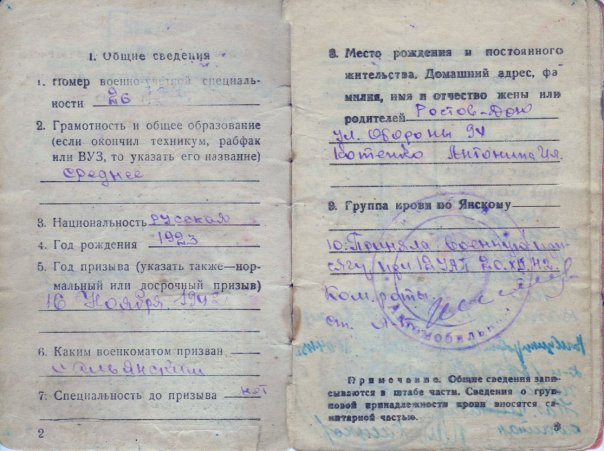 I. Общие сведения
1. Номер военно-учетной специаль-
ности 26
2. Грамотность и общее образование
(если окончил техникум, рабфак
или ВУЗ, то указать его название)
Среднее
3. Национальность русская
4. Год рождения 1923
5. Год призыва (указать также—нор-
мальный или досрочный призыв)
16 Ноября 1942
6. Каким военкоматом призван
Сальянским
7. Специальность до призыва нет
2
8. Место рождения и постоянного
жительства. Домашний адрес, фа
милия, имя и отчество жены или
родителей Ростов-Дон
ул. Обороны 94
Котенко Антонина
9. Группа крови по Янскому
10. Приняла военную при-
сягу при 12 УАП 20.XII.42
Ком. роты
ст.
Автомобильн
Примечание. Общие сведения запи-
сываются в штабе части. Сведения о груп-
повой принадлежности крови вносятся са-
нитарной частью.
3